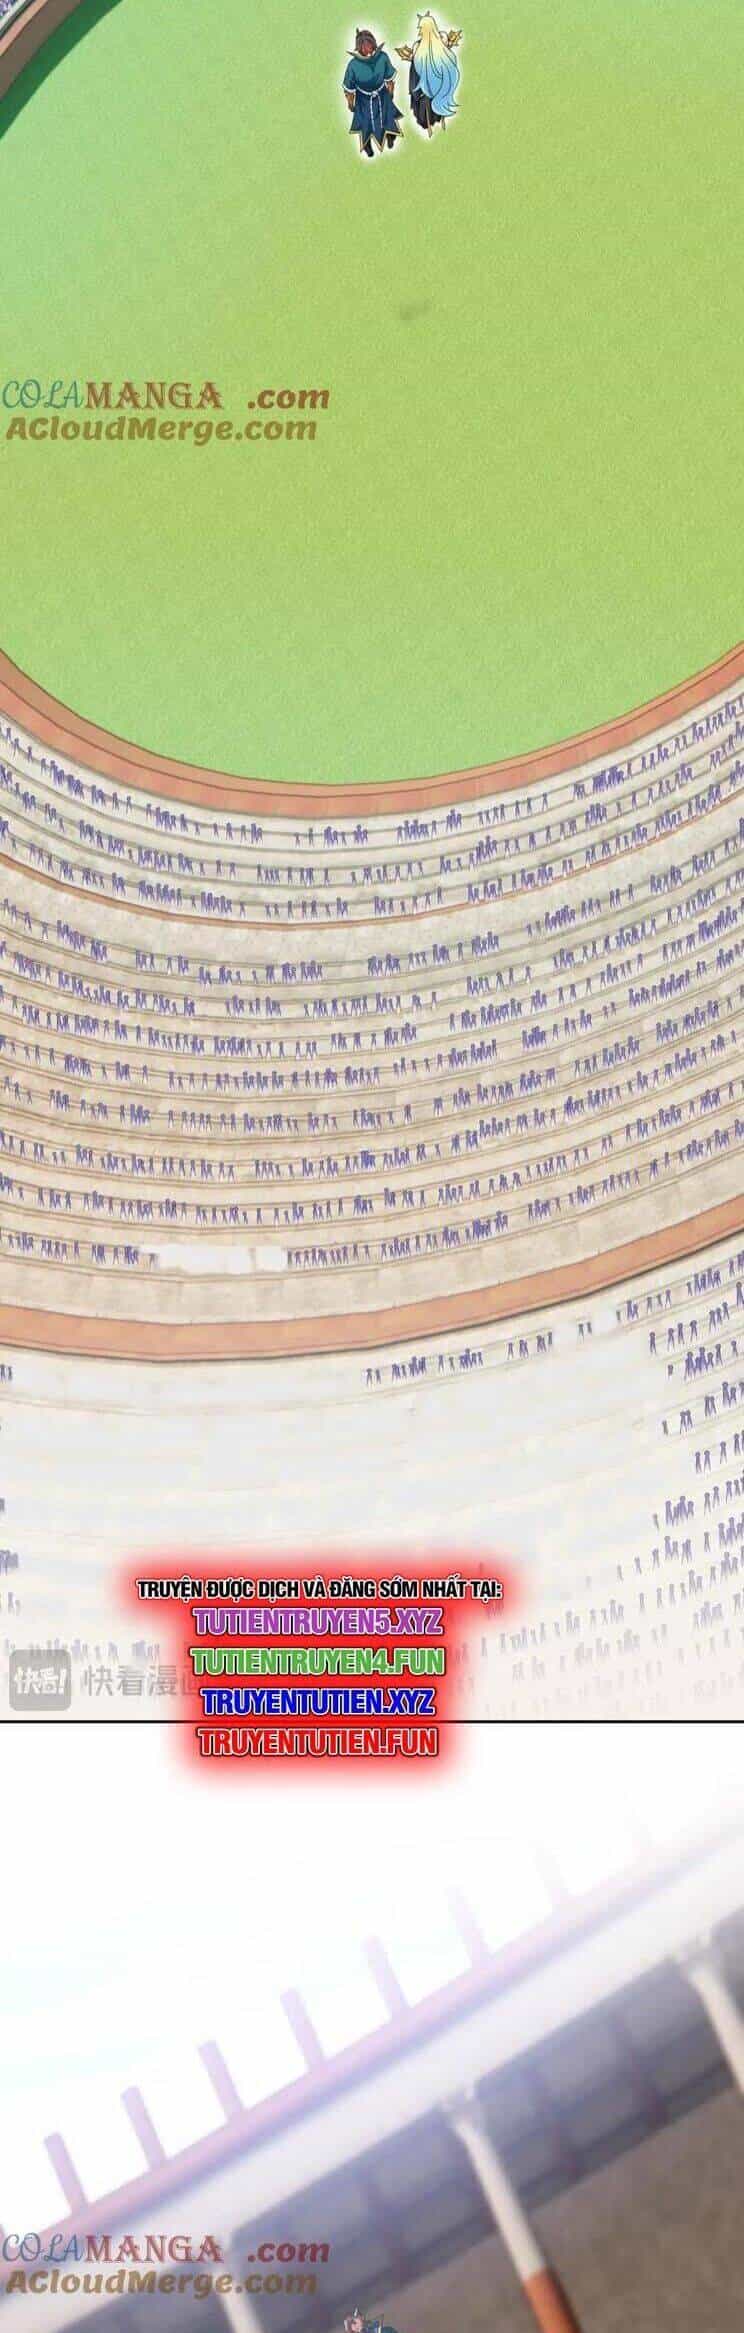 COLAMANGA.com
ACloudMerge.com
TRUYỆN ĐƯỢC DỊCH VÀ ĐĂNG SỚM NHẤT TẠI:
TUTIENTRUYEN5.XYZ
TUTIENTRUYEN4.FUN
快看! 快看漫画
TRUYENTUTIEN.XYZ
TRUYENTUTIEN.FUN
COLAMANGA.com
ACloudMerge.com